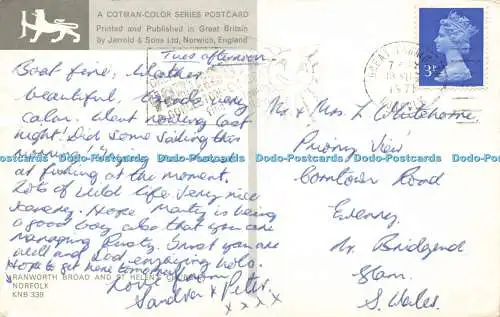 A COTMAN-COLOR SERIES POSTCARD
Printed and Published in Great Britain
by Jarrold & Sons Ltd, Norwich, England
Tues afternoon.
Boat fine; Weather
beautiful. Broads very
calm. Went rowing last
night! Did some sailing this
morning!
at fishing at the moment.
Lots of wild life. Very nice
scenery. Hope Marty is being
a good boy, also that you are
managing Rusty. Trust you are
well and Dad enjoying hols.
Hope to get here tomorrow
Love from
Sandra & Peter.
x x x x
RANWORTH BROAD AND ST HELEN'S CHURCH
NORFOLK
KNB 339
GREAT YARMOUTH
1971
3P
Mr & Mrs L Whitehorne
Priory View
Corntown Road
Ewenny
Nr. Bridgend
Glam.
S. Wales.
Dodo-Postcards Dodo-Postcards Dodo-Postcards Dodo-Postcards Dodo-Postcards